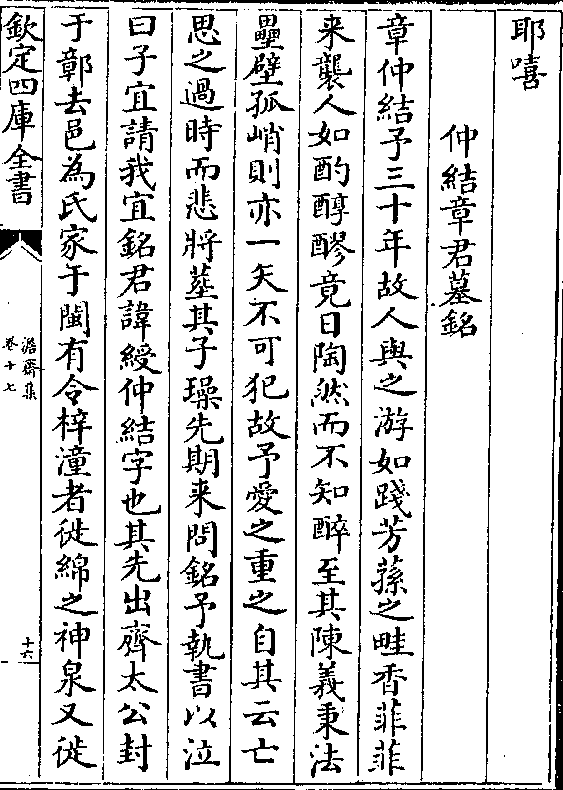 耶嘻
仲結章君墓銘
章仲結予三十年故人與之游如踐芳蓀之畦香菲菲
来襲人如酌醇醪竟日陶然而不知醉至其陳義秉法
壘壁孤峭則亦一矢不可犯故予愛之重之自其云亡
思之過時而悲將塟其子璪先期来問銘予執書以泣
曰子宜請我宜銘君諱綬仲結字也其先出齊太公封
于鄣去邑為氏家于閩有令梓潼者徙綿之神泉又徙
欽定四庫全書
澹齋集
卷十七
十六